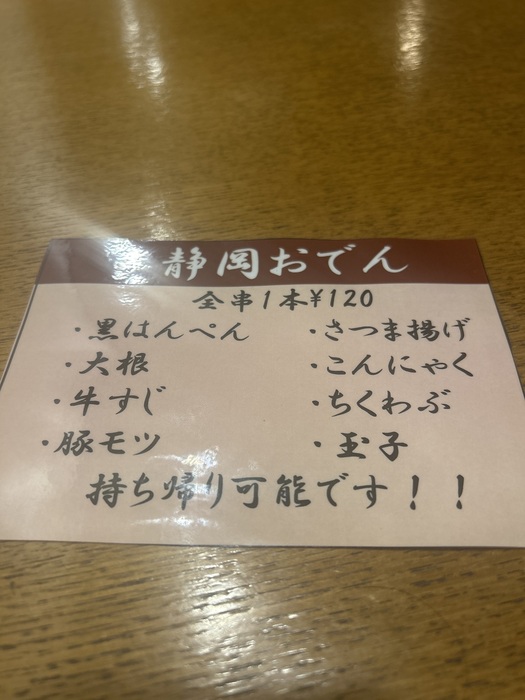 静岡おでん
全串1本¥120
・黒はんぺん ・さつま揚げ
・大根 ・こんにゃく
・牛すじ ・ちくわぶ
・豚モツ ・玉子
持ち帰り可能です！！